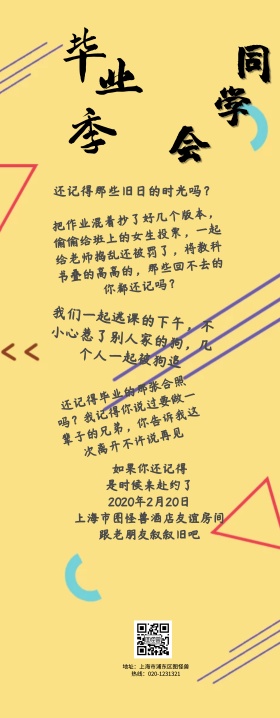 毕业季
同学会
还记得那些旧日的时光吗?
把作业混着抄了好几个版本,
偷偷给班上的女生投票,一起
给老师捣乱还被罚了,将教科
书叠的高高的,那些回不去的
你都还记吗?
我们一起逃课的下午,不
小心惹了别人家的狗,几
个人一起被狗追
还记得毕业的那张合照
吗?我记得你说过要做一
辈子的兄弟,你告诉我这
次离开不许说再见
如果你还记得
是时候来赴约了
2020年2月20日
上海市图怪兽酒店友谊房间
跟老朋友叙叙旧吧
地址:上海市浦东区图怪兽
热线:020-1231321